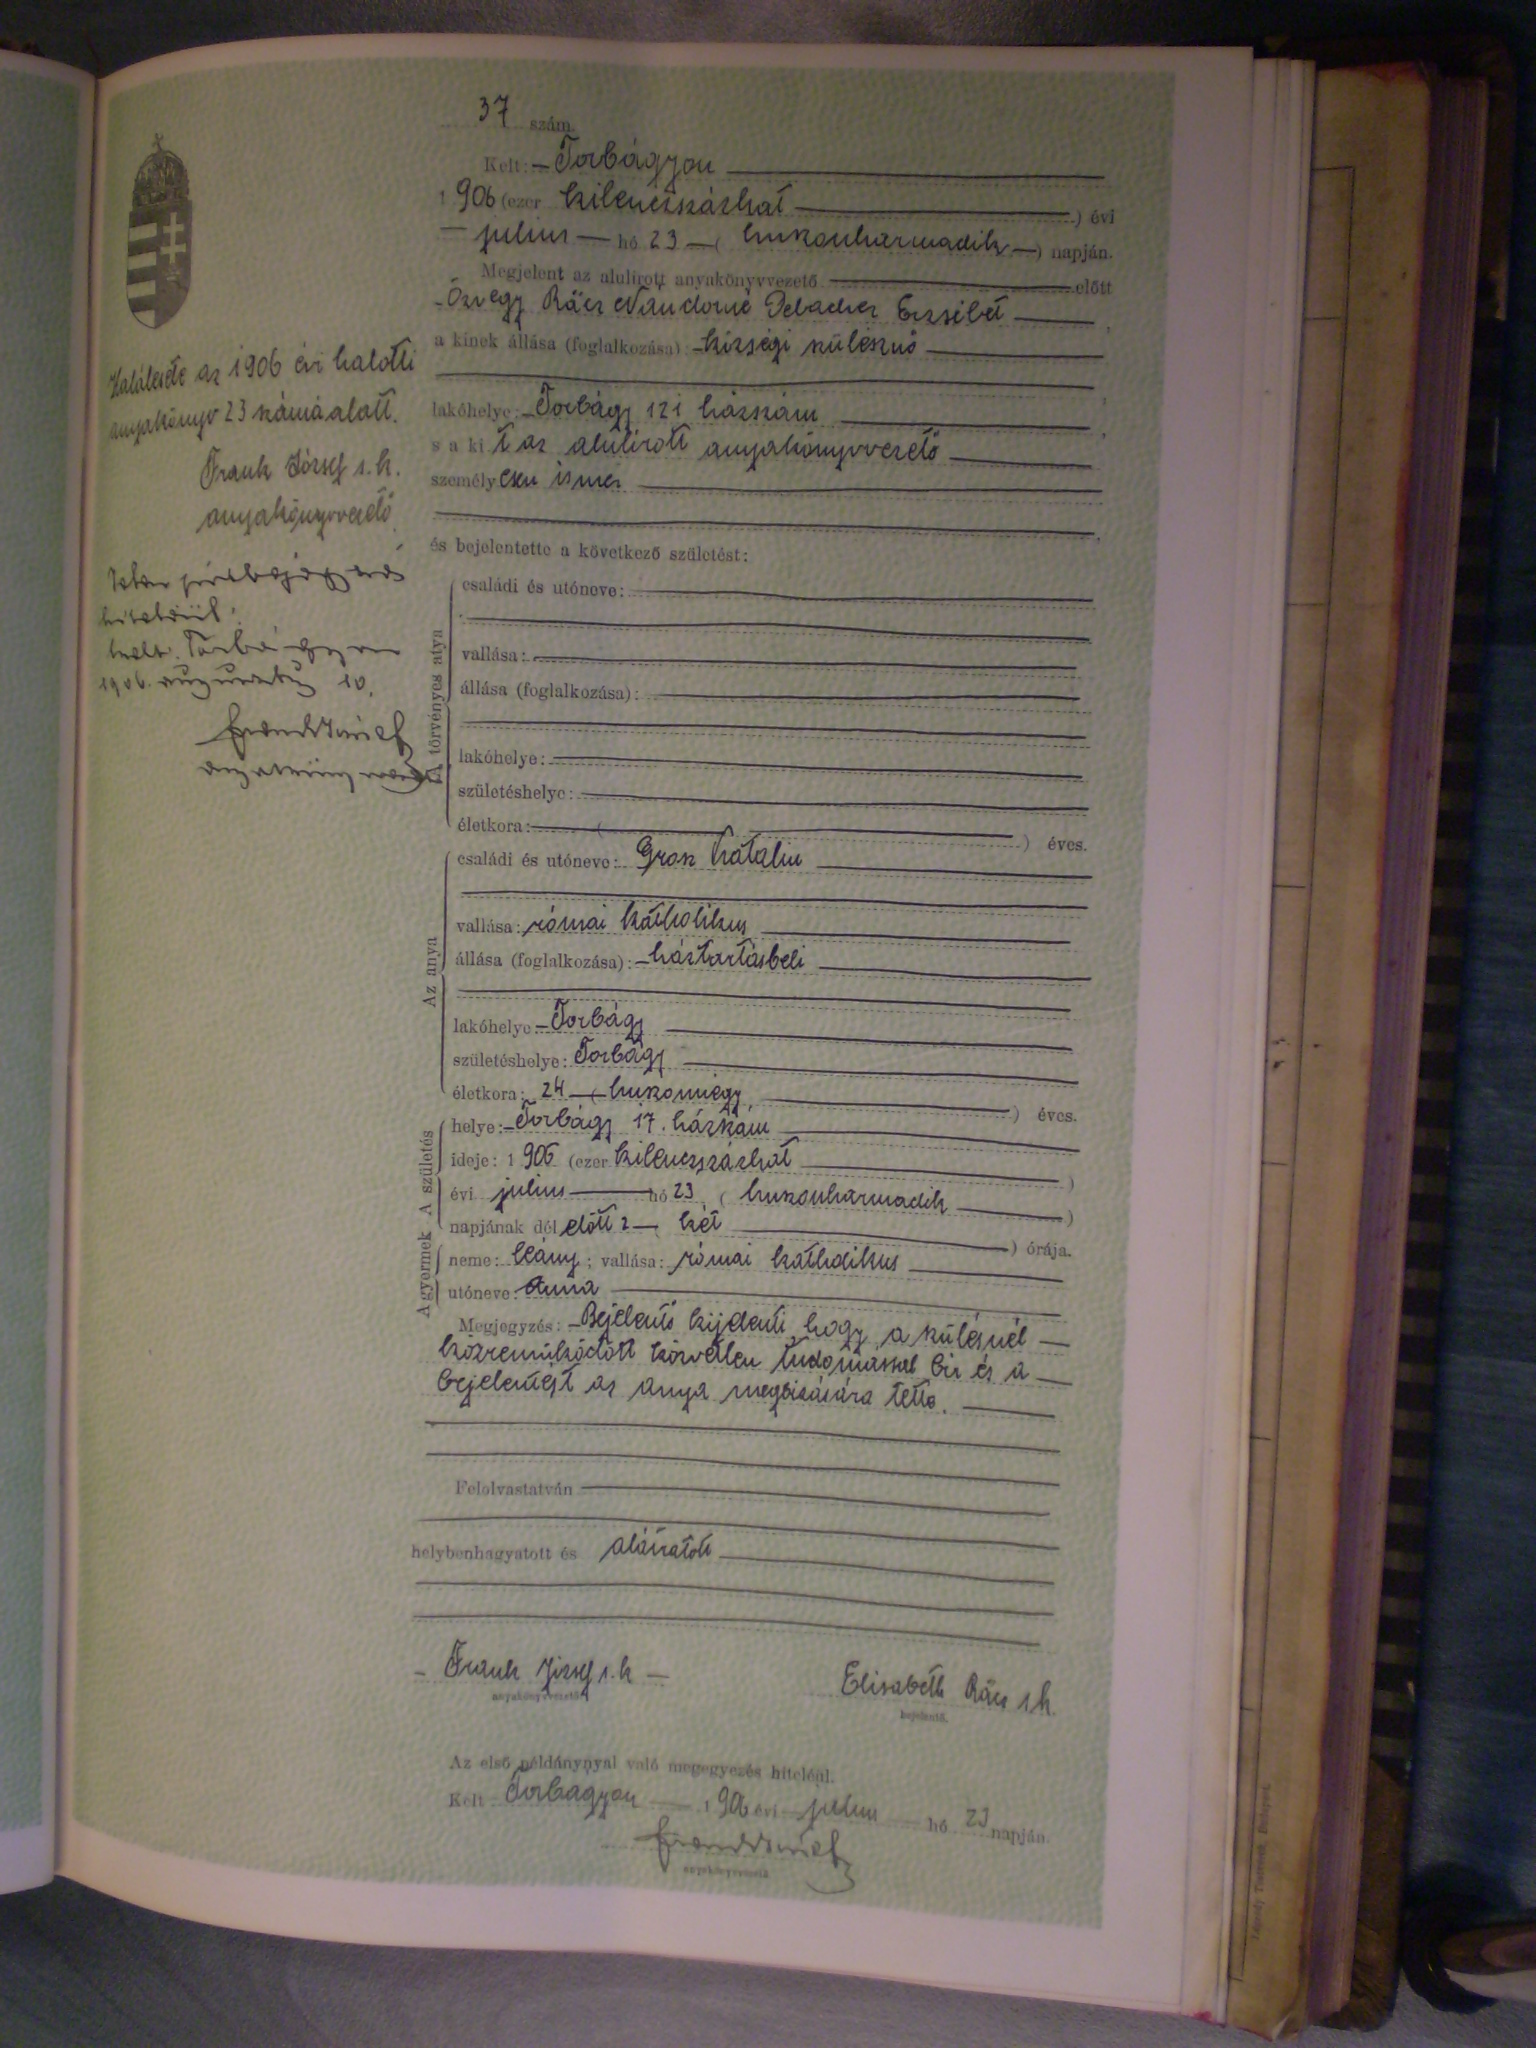 37 szám.
Kelt: Torbágyon
1906 (ezer kilenczszázhat) évi
julius hó 23 (huszonharmadik) napján.
Megjelent az alulirott anyakönyvvezető előtt
Özvegy Rácz Nándorné Erzsébet
a kinek állása (foglalkozása): községi szülésznő
lakóhelye: Torbágy 121 házszám
s a kit az alulirott anyakönyvvezető
személyesen ismer
és bejelentette a következő születést:
A törvényes atya
családi és utóneve:
vallása:
állása (foglalkozása):
lakóhelye:
születéshelye:
életkora: ( ) éves.
Az anya
családi és utóneve: Katalin
vallása: római katholikus
állása (foglalkozása): háztartásbeli
lakóhelye: Torbágy
születéshelye: Torbágy
életkora: 24 (huszonnégy) éves.
A születés
helye: Torbágy 17. házszám
ideje: 1906 (ezer kilenczszázhat)
évi julius hó 23 (huszonharmadik)
napjának délelőtt 2 (két) órája.
A gyermek
neme: leány; vallása: római katholikus
utóneve: Anna
Megjegyzés: Bejelentő kijelenti, hogy a szülésnél
közreműködött közvetlen tudomással bir és a
bejelentést az anya megbizására tette.
Felolvastatván
helybenhagyatott és aláiratott
Frank József s.k.
anyakönyvvezető
Elisabeth Rácz s.k.
bejelentő.
Az első példánynyal való megegyezés hiteléül.
Kelt Torbágyon 1906 évi julius hó 23 napján.
anyakönyvvezető
Halálesete az 1906 évi halotti
anyakönyv 23 száma alatt.
Frank József s.k.
anyakönyvvezető
hiteléül:
Kelt. Torbágyon
1906. augusztus 10.
anyakönyvvezető